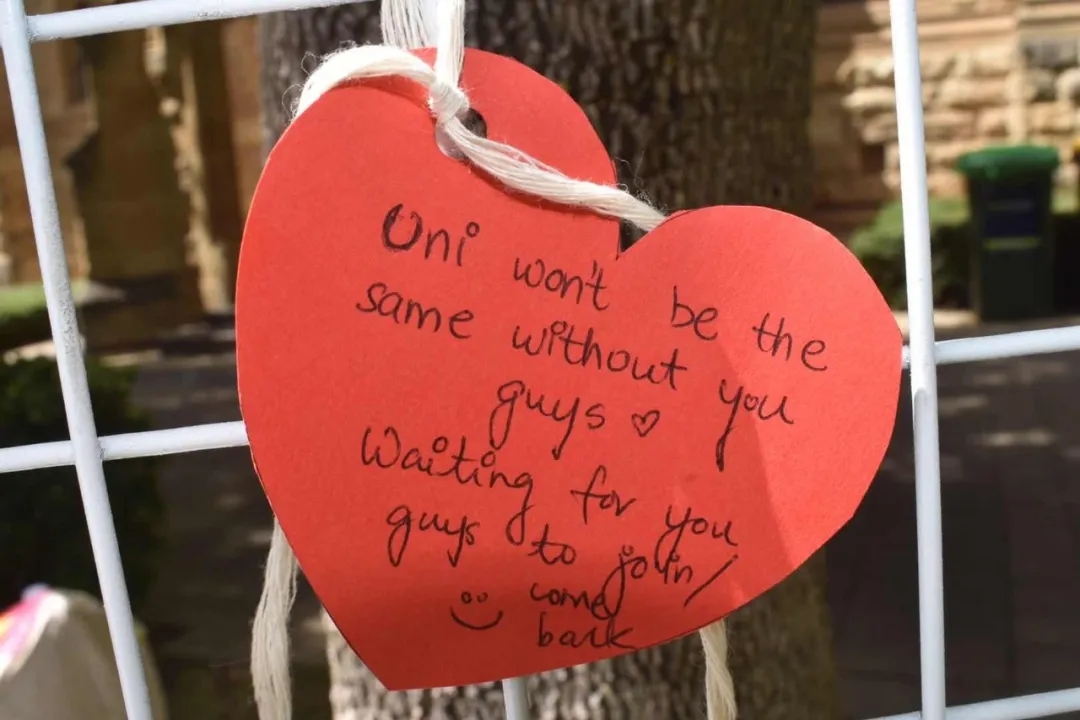 Uni won't be the
same without you
guys ♡
Waiting for you
guys to join/
come
back